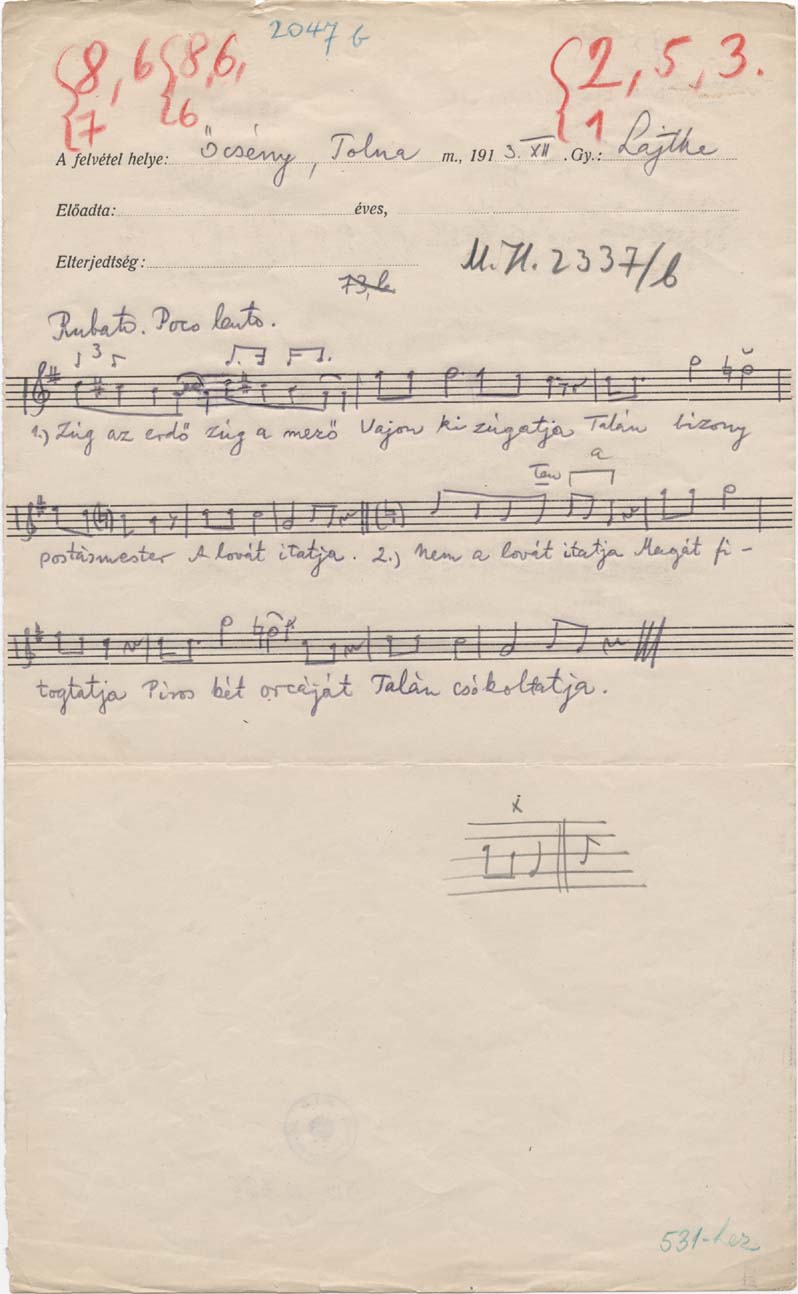 2047 b
8, 6 8,6,
7 6
2, 5, 3.
1
A felvétel helye: Őcsény, Tolna m., 191 3. XII .Gy.: Lajtha
Előadta: éves,
Elterjedtség: M.H. 2337/b
73,b
Rubato. Poco lento.
3
1.) Zúg az erdő zúg a mező Vajon ki zúgatja Talán bizony
ten a
postásmester A lovát itatja. 2.) Nem a lovát itatja Magát fi-
togtatja Piros két orcáját Talán csókoltatja.
x
531-hez